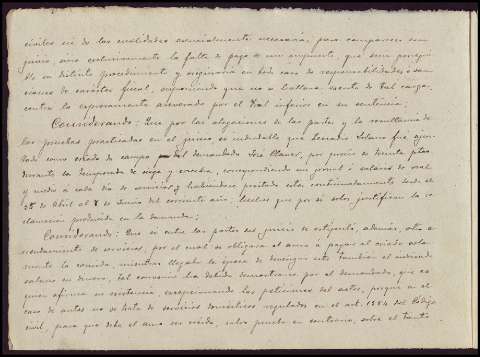 civiles ni de las cualidades esencialmente necesarias para comparecer en
juicio, sino exclusivamente la falta de pago de un impuesto, que será perseguible
en distinto procedimiento y originaria en todo caso de responsabilidades
de carácter fiscal, suponiendo que no se hallare exento de tal carga
contra lo expresamente aseverado por el Tral inferior en su sentencia;
Considerando: Que por las alegaciones de las partes y la resultancia de
las pruebas practicadas en el juicio es indudable que Senador Solano fué ajus-
tado como criado de campo del demandado José Llaner, por precio de treinta ptas
durante la temporada de siega y cosecha, correspondiendo un jornal o salario de real
y medio a cada día de servicio, y habiéndose prestado estos continuadamente desde el
25 de Abril al 8 de Junio del corriente año; hechos que por si solos justifican la re-
clamación producida en la demanda;
Considerando: Que si entre las partes en juicio se estipuló, además, otro a-
rrendamiento de servicios, por el cual se obligara el amo a pagar al criado sola-
mente la comida, mientras llegaba la época de devengar este también el indicado
salario en dinero, tal convenio ha debido demostrarse por el demandado, que es
quien afirma su existencia, excepcionando las peticiones del actor, porque en el
caso de autos no se trata de servicios domésticos regulados en el art. 1584 del Código
civil, para que deba el amo ser creído, salvo prueba en contrario, sobre el tanto